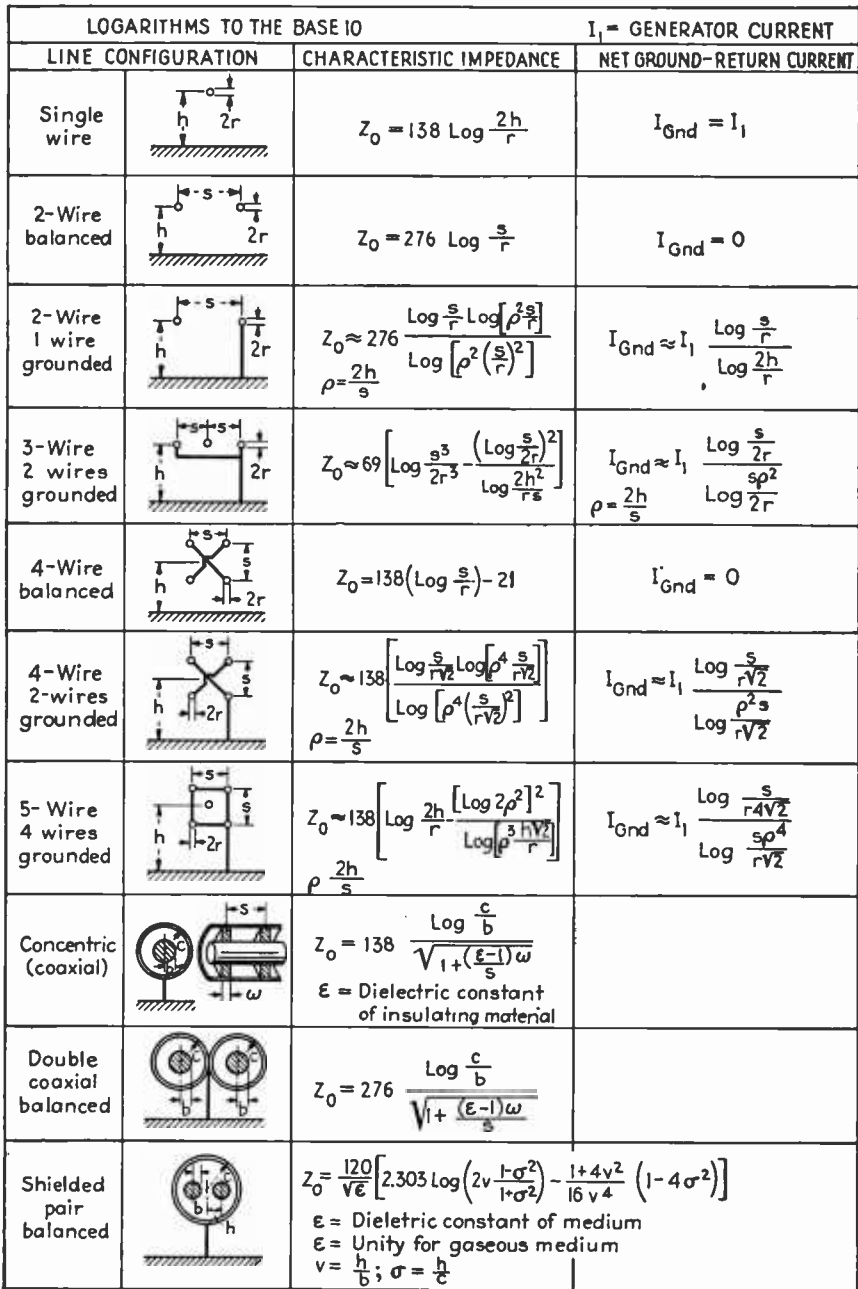 LOGARITHMS TO THE BASE 10 I₁ = GENERATOR CURRENT
LINE CONFIGURATION CHARACTERISTIC IMPEDANCE NET GROUND-RETURN CURRENT
Single wire
h 2r
Z₀ = 138 Log 2h/r
I Gnd = I₁
2-Wire balanced
s h 2r
Z₀ = 276 Log s/r
I Gnd = 0
2-Wire 1 wire grounded
s h 2r
Z₀ ≈ 276 (Log s/r Log[ρ² s/r]) / (Log [ρ² (s/r)²])
ρ = 2h/s
I Gnd ≈ I₁ (Log s/r) / (Log 2h/r)
3-Wire 2 wires grounded
s s h 2r
Z₀ ≈ 69 [Log s³/2r³ - (Log s/2r)² / (Log 2h²/rs)]
I Gnd ≈ I₁ (Log s/2r) / (Log sρ²/2r)
ρ = 2h/s
4-Wire balanced
s s h 2r
Z₀ = 138 (Log s/r) - 21
I Gnd = 0
4-Wire 2-wires grounded
s s h 2r
Z₀ ≈ 138 [(Log s/r√2 Log[ρ⁴ s/r√2]) / (Log [ρ⁴ (s/r√2)²])]
ρ = 2h/s
I Gnd ≈ I₁ (Log s/r√2) / (Log ρ²s/r√2)
5-Wire 4 wires grounded
s s h 2r
Z₀ ≈ 138 [Log 2h/r - [Log 2ρ²]² / (Log[ρ³ h√2/r])]
ρ 2h/s
I Gnd ≈ I₁ (Log s/r4√2) / (Log sρ⁴/r√2)
Concentric (coaxial)
c b s ω
Z₀ = 138 (Log c/b) / √(1 + ((ε-1)/s) ω)
ε = Dielectric constant
of insulating material
Double coaxial balanced
c c b b
Z₀ = 276 (Log c/b) / √(1 + (ε-1)ω/s)
Shielded pair balanced
c b h
Z₀ = 120/√ε [2.303 Log (2v (1-σ²)/(1+σ²)) - (1+4v²)/(16v⁴) (1-4σ²)]
ε = Dieletric constant of medium
ε = Unity for gaseous medium
v = h/b; σ = h/c